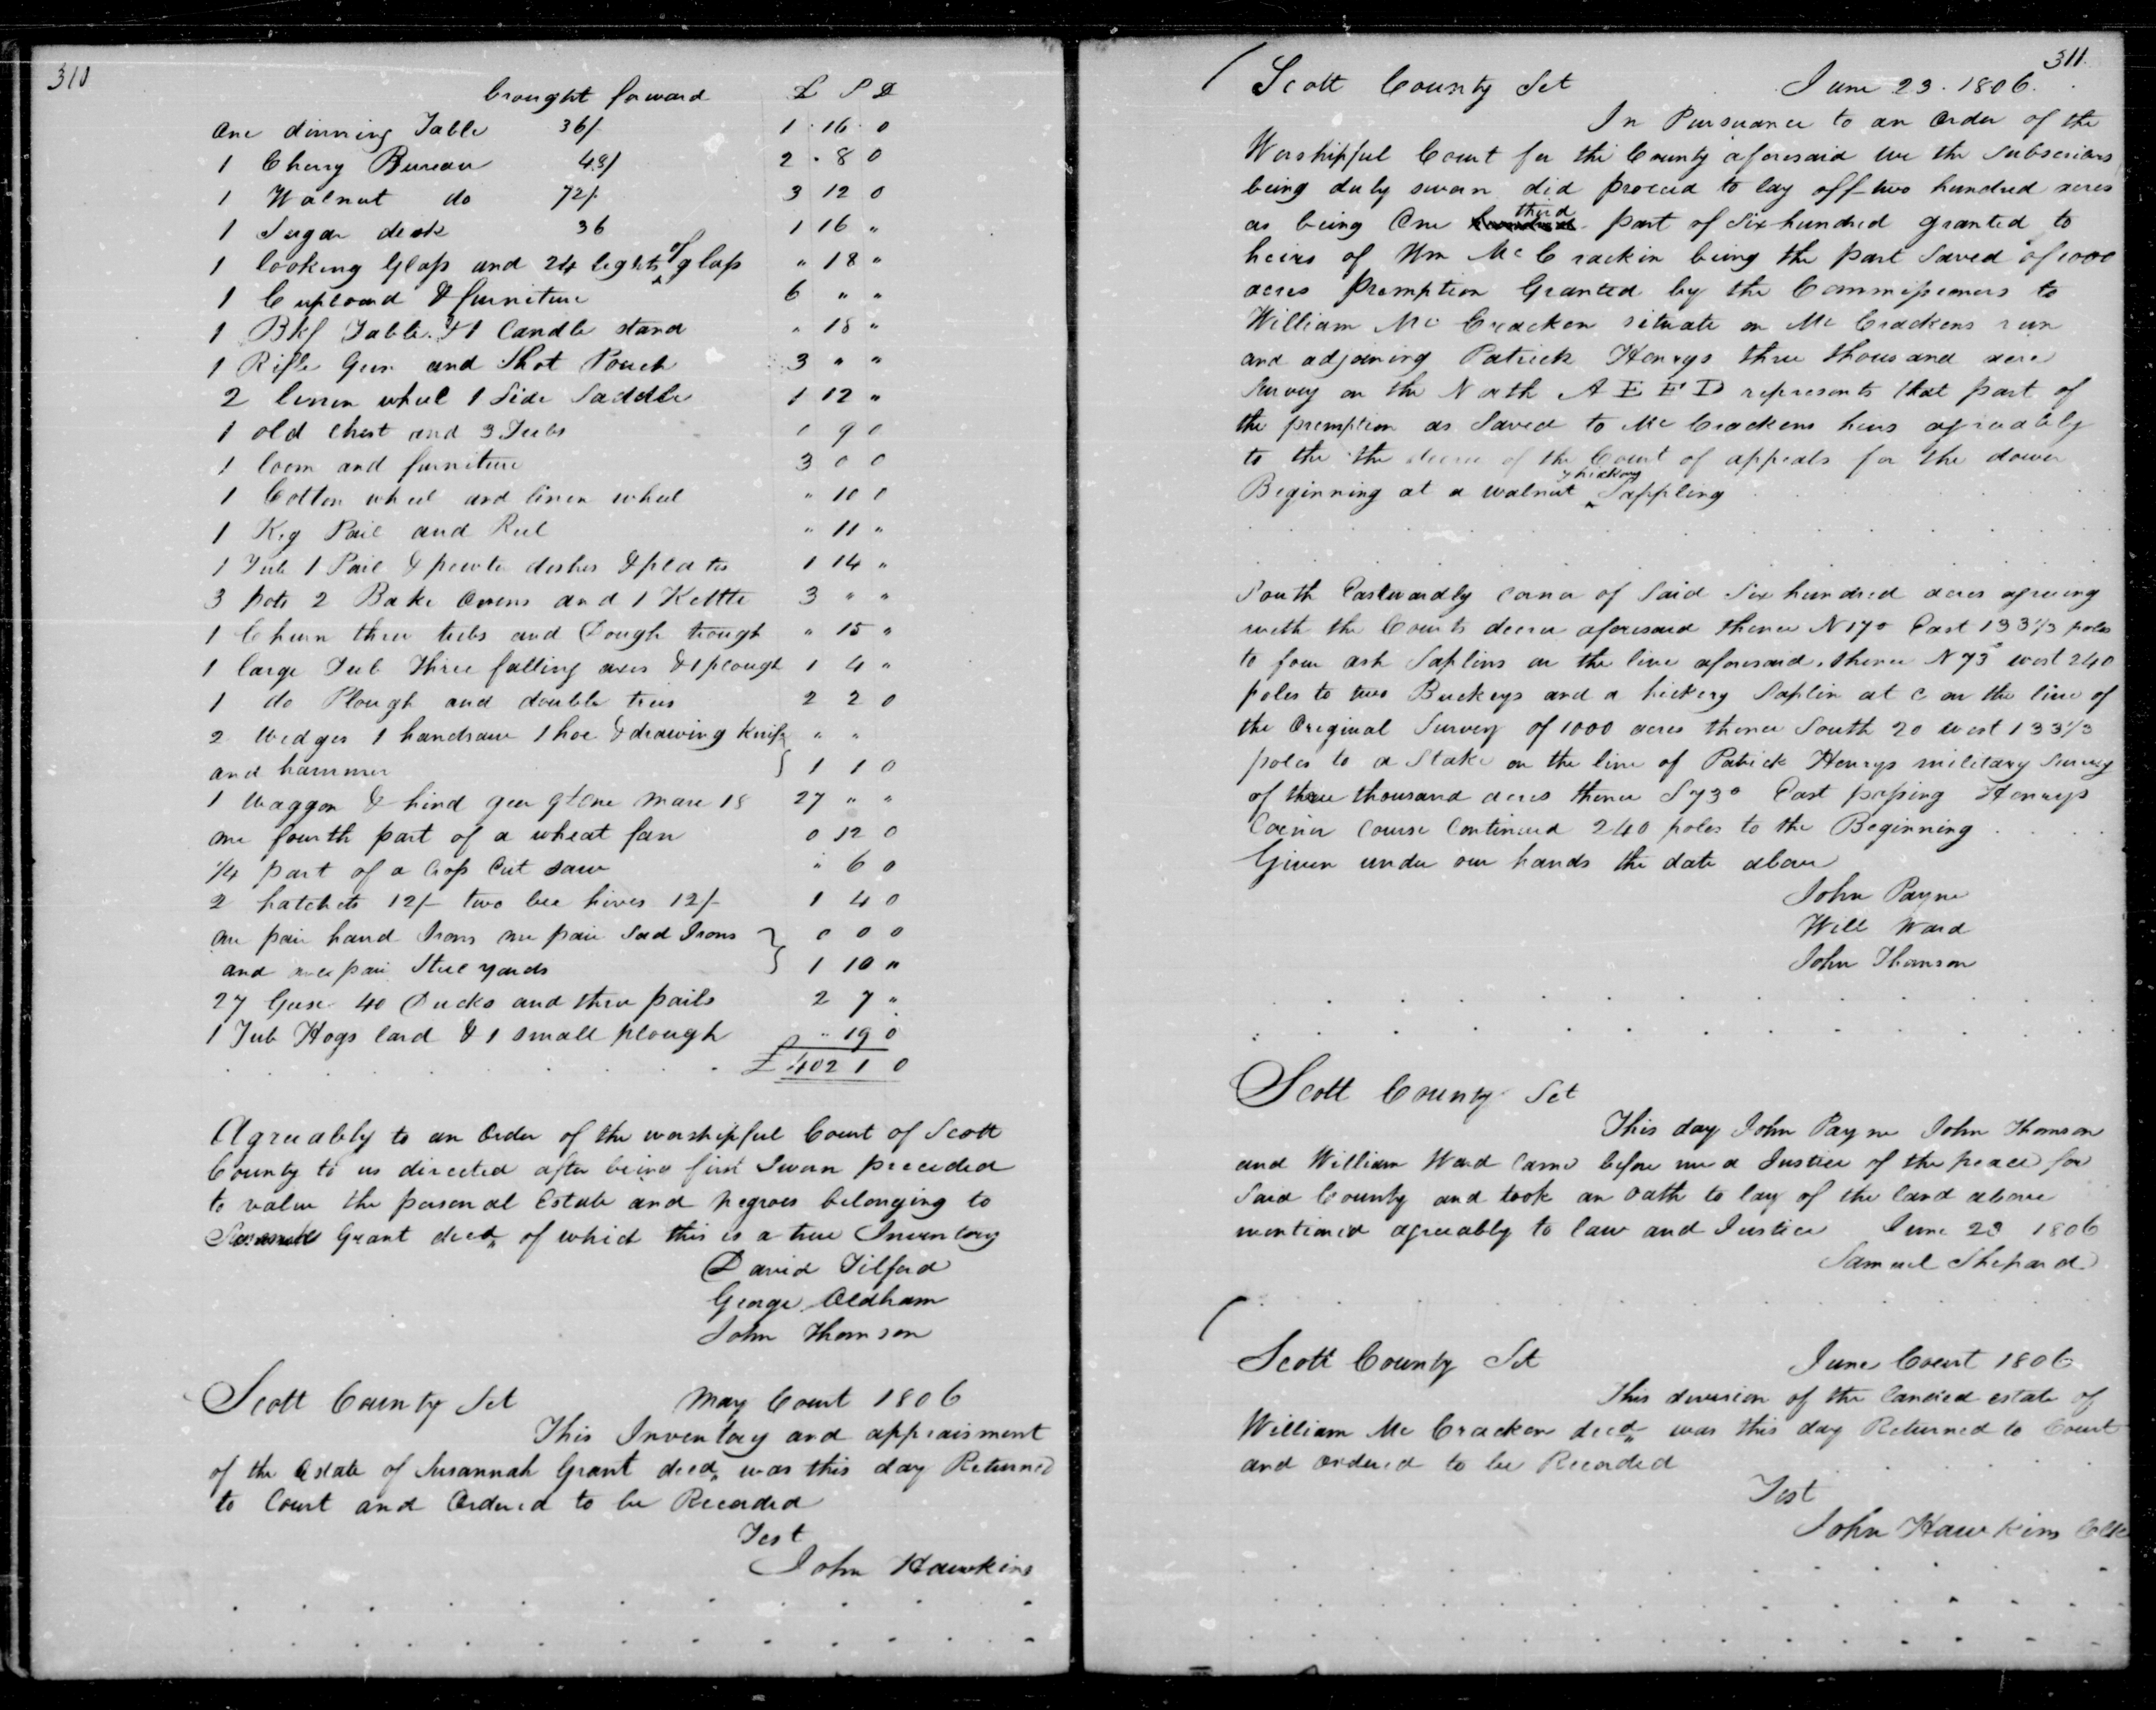 310
brought forward £ S D
One dinning Table 36/ 1 16 0
1 Cherry Bureau 48/ 2 8 0
1 Walnut do 72/ 3 12 0
1 Sugar desk 36 1 16 "
1 looking Glass and 24 lights of glass " 18 "
1 Cupboard & furniture 6 " "
1 Bkf Table & 1 Candle stand " 18 "
1 Rifle Gun and Shot Pouch 3 " "
2 linnen wheel 1 Side Saddle 1 12 "
1 old Chest and 3 Tubs 0 9 0
1 loom and furniture 3 0 0
1 Cotton wheel and linen wheel " 10 0
1 Keg Pail and Reel " 11 "
1 Tub 1 Pail & pewter dishes & plates 1 14 "
3 pots 2 Bake Ovens and 1 Kettle 3 " "
1 Churn three tubs and Dough trough " 15 "
1 large Tub Three falling axes & 1 plough 1 4 "
1 do Plough and double trees 2 2 0
2 Wedges 1 handsaw 1 hoe & drawing Knife " "
and hammer } 1 1 0
1 Waggon & hind geer & one mare 18 27 " "
one fourth part of a wheat fan 0 12 0
1/4 part of a Crop Cut saw " 6 0
2 hatchets 12/- two bee hives 12/- 1 4 0
one pair hand Irons one pair Sad Irons } 0 0 0
and one pair Steelyards 1 10 "
27 Geese 40 Ducks and three pails 2 7 "
1 Tub Hogs lard & 1 small plough " 19 0
£ 402 1 0
Agreeably to an Order of the worshipful Court of Scott
County to us directed after being first Sworn proceeded
to value the personal Estate and negroes belonging to
Grant decd, of which this is a true Inventory
David Tilford
George Oldham
John Thomson
Scott County Sct May Court 1806
This Inventory and appraisment
of the Estate of Susannah Grant decd, was this day Returned
to Court and Ordered to be Recorded
Test
John Hawkins
311
Scott County Sct June 23. 1806.
In Pursuance to an Order of the
Worshipful Court for the County aforesaid we the Subscribers
being duly sworn did proceed to lay off two hundred acres
as being One third part of Six hundred granted to
heirs of Wm McCrackin being the part Saved of 1000
acres Premption Granted by the Commissioners to
William McCracken situate on McCrackens run
and adjoining Patrick Henrys three thousand acre
Survey on the North A E F D represents that part of
the premption as Saved to McCrackens heirs agreeably
to the the decree of the Court of appeals for the dower
Beginning at a walnut & hickory Sappling
South Eastwardly corner of Said Six hundred acres agreeing
with the Courts decree aforesaid thence N 17° East 133 1/3 poles
to four ash Saplins on the line aforesaid, thence N 73° west 240
poles to two Buckeys and a hickory Saplin at C on the line of
the Original Survey of 1000 acres thence South 20 west 133 1/3
poles to a Stake on the line of Patrick Henrys military Survey
of three thousand acres thence S 73° East passing Henrys
Corner Course Continued 240 poles to the Beginning
Given under our hands the date above
John Payne
Will Ward
John Thomson
Scott County Sct
This day John Payne John Thomson
and William Ward Came before me a Justice of the peace for
Said County and took an Oath to lay of the land above
mentioned agreeably to law and Justice June 23 1806
Samuel Shepard
Scott County Sct June Court 1806
This division of the landed estate of
William McCracken decd, was this day Returned to Court
and ordered to be Recorded
Test
John Hawkins Clk